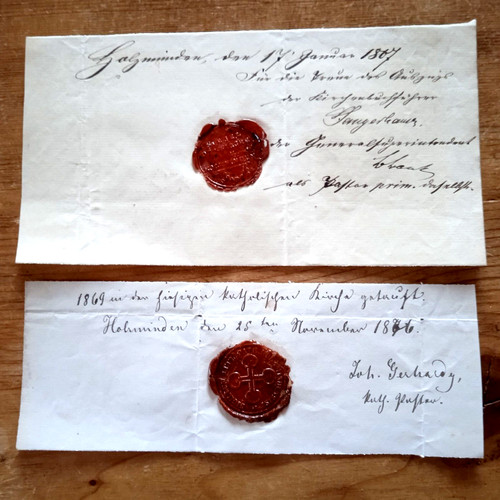 Holzminden, den 17. Januar 1867
Für die Treue des Auszugs
der Kirchenbuchführer
der Generalsuperintendent
als Pastor prim. daselbst.
1869 in der hiesigen katholischen Kirche getauft.
Holzminden den 25 ten November 1876.
Joh. Gerhardy,
kath. Pastor.